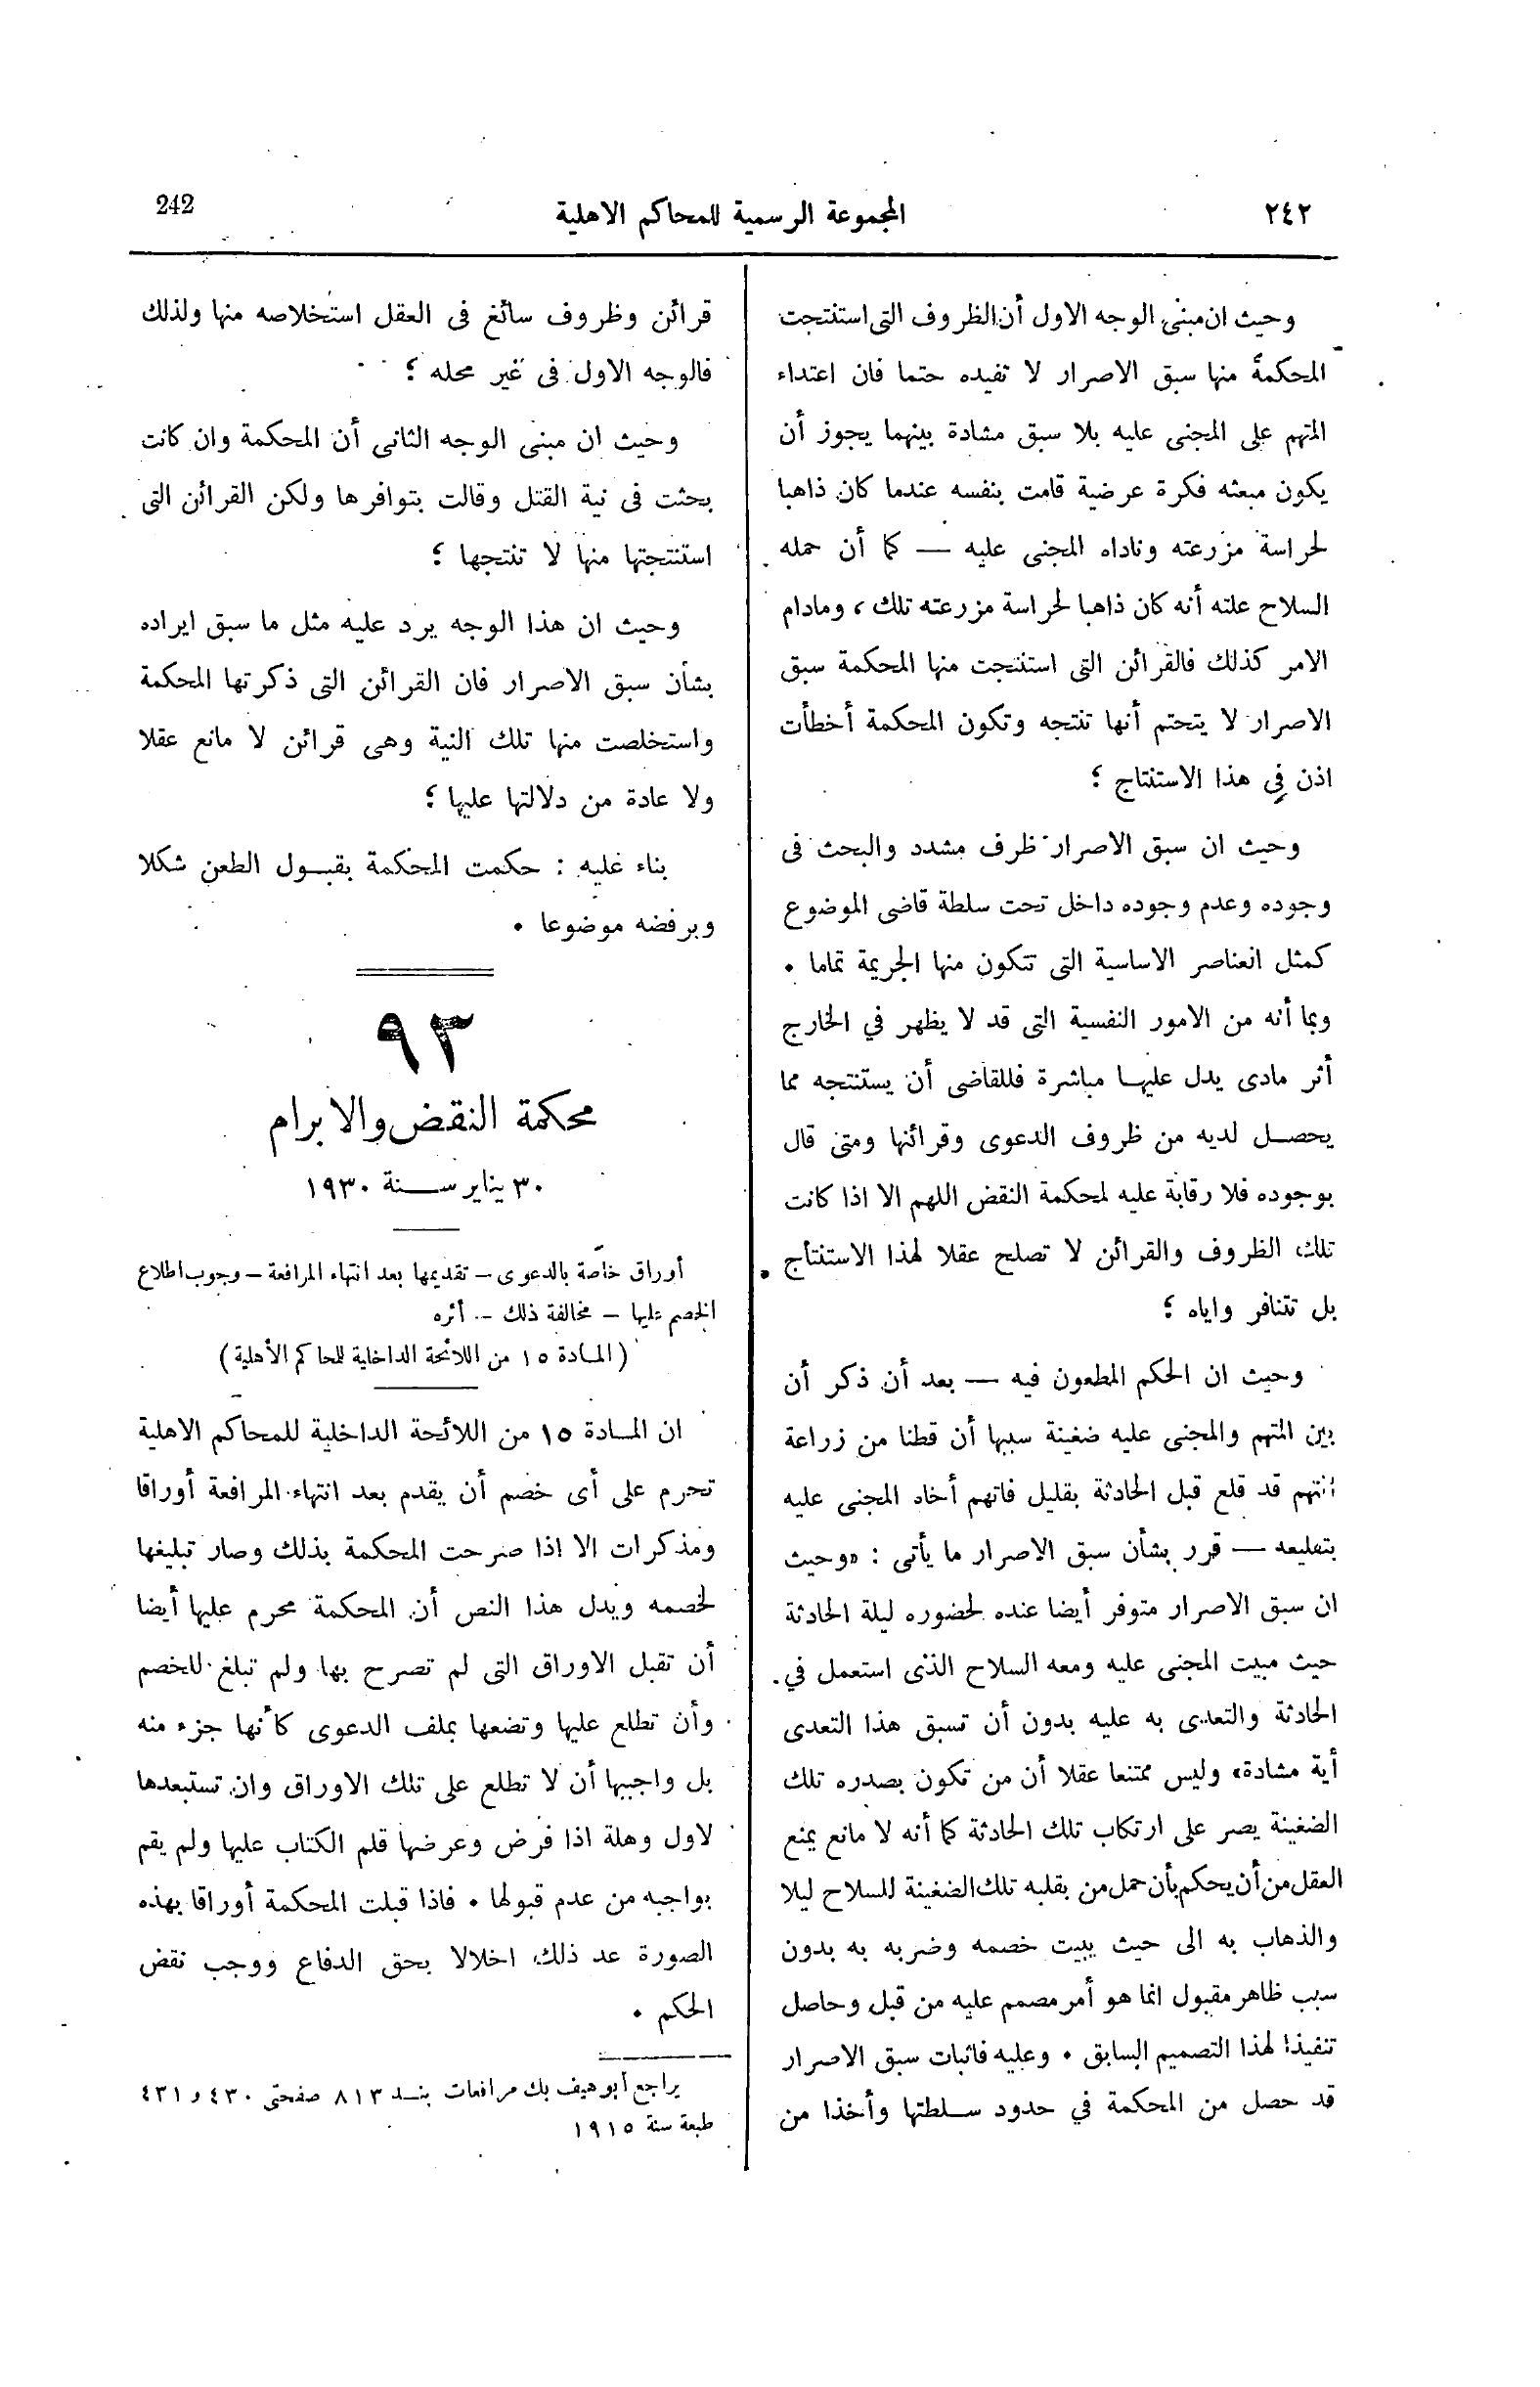 ٢٤٢
المجموعة الرسمية للمحاكم الاهلية
242
وحيث ان مبنى الوجه الاول أن الظروف التى استنتجت
المحكمة منها سبق الاصرار لا تفيده حتما فان اعتداء
المتهم على المجنى عليه بلا سبق مشادة بينهما يجوز أن
يكون مبعثه فكرة عرضية قامت بنفسه عندما كان ذاهبا
لحراسة مزرعته وناداه المجنى عليه — كما أن حمله
السلاح علته أنه كان ذاهبا لحراسة مزرعته تلك ، ومادام
الامر كذلك فالقرائن التى استنتجت منها المحكمة سبق
الاصرار لا يتحتم أنها تنتجه وتكون المحكمة أخطأت
اذن في هذا الاستنتاج ؛
وحيث ان سبق الاصرار ظرف مشدد والبحث فى
وجوده وعدم وجوده داخل تحت سلطة قاضى الموضوع
كمثل العناصر الاساسية التى تتكون منها الجريمة تماما .
وبما أنه من الامور النفسية التى قد لا يظهر في الخارج
أثر مادى يدل عليها مباشرة فللقاضى أن يستنتجه مما
يحصل لديه من ظروف الدعوى وقرائنها ومتى قال
بوجوده فلا رقابة عليه لمحكمة النقض اللهم الا اذا كانت
تلك الظروف والقرائن لا تصلح عقلا لهذا الاستنتاج
بل تتنافر واياه ؛
وحيث ان الحكم المطعون فيه — بعد أن ذكر أن
بين المتهم والمجنى عليه ضغينة سببها أن قطنا من زراعة
المتهم قد قلع قبل الحادثة بقليل فاتهم أخاه المجنى عليه
بتقليعه — قرر بشأن سبق الاصرار ما يأتى : «وحيث
ان سبق الاصرار متوفر أيضا عنده لحضوره ليلة الحادثة
حيث مبيت المجنى عليه ومعه السلاح الذى استعمل في
الحادثة والتعدى به عليه بدون أن تسبق هذا التعدى
أية مشادة» وليس ممتنعا عقلا أن من تكون بصدره تلك
الضغينة يصر على ارتكاب تلك الحادثة كما أنه لا مانع يمنع
العقل من أن يحكم بأن حمل من بقلبه تلك الضغينة للسلاح ليلا
والذهاب به الى حيث يبيت خصمه وضربه به بدون
سبب ظاهر مقبول انما هو أمر مصمم عليه من قبل وحاصل
تنفيذا لهذا التصميم السابق . وعليه فاثبات سبق الاصرار
قد حصل من المحكمة في حدود سلطتها وأخذا من
قرائن وظروف سائغ فى العقل استخلاصه منها ولذلك
فالوجه الاول فى غير محله ؛
وحيث ان مبنى الوجه الثانى أن المحكمة وان كانت
بحثت فى نية القتل وقالت بتوافرها ولكن القرائن التى
استنتجتها منها لا تنتجها ؛
وحيث ان هذا الوجه يرد عليه مثل ما سبق ايراده
بشأن سبق الاصرار فان القرائن التى ذكرتها المحكمة
واستخلصت منها تلك النية وهى قرائن لا مانع عقلا
ولا عادة من دلالتها عليها ؛
بناء عليه : حكمت المحكمة بقبول الطعن شكلا
وبرفضه موضوعا .
٩٣
محكمة النقض والابرام
٣٠ يناير سنة ١٩٣٠
أوراق خاصة بالدعوى – تقديمها بعد انتهاء المرافعة – وجوب اطلاع
الخصم عليها – مخالفة ذلك – أثره
(المادة ١٥ من اللائحة الداخلية للمحاكم الأهلية)
ان المادة ١٥ من اللائحة الداخلية للمحاكم الاهلية
تحرم على أى خصم أن يقدم بعد انتهاء المرافعة أوراقا
ومذكرات الا اذا صرحت المحكمة بذلك وصار تبليغها
لخصمه ويدل هذا النص أن المحكمة محرم عليها أيضا
أن تقبل الاوراق التى لم تصرح بها ولم تبلغ للخصم
وأن تطلع عليها وتضعها بملف الدعوى كأنها جزء منه
بل واجبها أن لا تطلع على تلك الاوراق وان تستبعدها
لاول وهلة اذا فرض وعرضها قلم الكتاب عليها ولم يقم
بواجبه من عدم قبولها . فاذا قبلت المحكمة أوراقا بهذه
الصورة عد ذلك اخلالا بحق الدفاع ووجب نقض
الحكم .
يراجع أبو هيف بك مرافعات بند ٨١٣ صفحتى ٤٣٠ و ٤٣١
طبعة سنة ١٩١٥